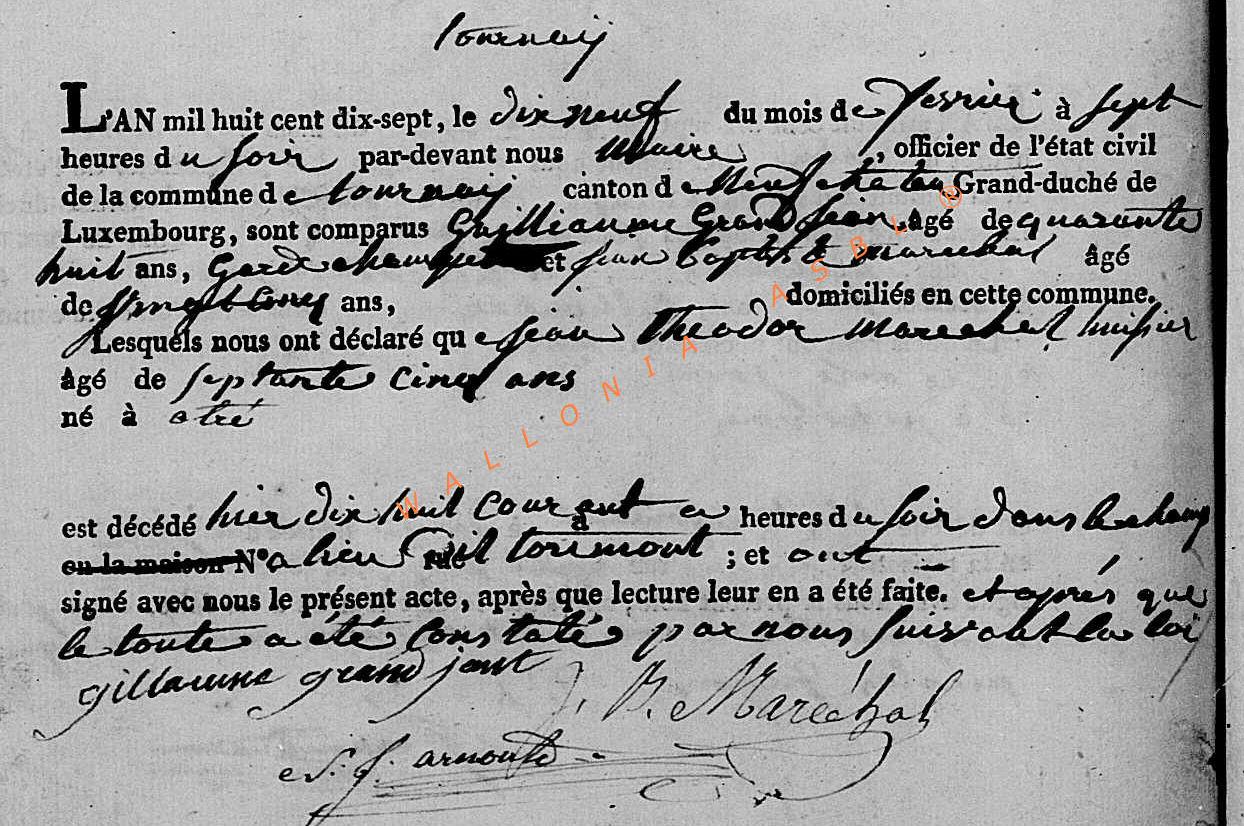 tournay
L'AN mil huit cent dix-sept, le dix neuf du mois de fevrier à sept
heures du soir par-devant nous Maire, officier de l'état civil
de la commune de tournay canton de Neufchateau Grand-duché de
Luxembourg, sont comparus Guilliaume Grand jean, âgé de quarante
huit ans, Gard champet et jean baptiste marechal âgé
de vingt cinq ans, domiciliés en cette commune.
Lesquels nous ont déclaré que jean Theodor Marechel huissier
âgé de septante cinq ans
né à otré
est décédé hier dix huit courant a heures du soir dans le champ
en la maison N° a lieu rue dit tourmont ; et ont
signé avec nous le présent acte, après que lecture leur en a été faite. et après que
le toute a été constaté par nous suivant la loi
gillaume grand jent J. B. Maréchal
arnould
WALLONIA ASBL ®